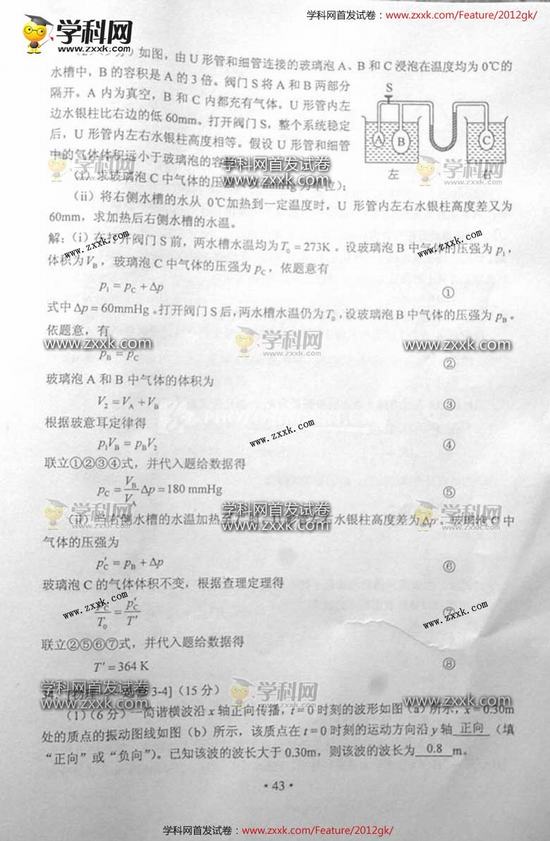 学科网首发试卷：www.zxxk.com/Feature/2012gk/
学科网
www.zxxk.com
如图，由 U 形管和细管连接的玻璃泡 A、B 和 C 浸泡在温度均为 0℃的
水槽中，B 的容积是 A 的 3 倍。阀门 S 将 A 和 B 两部分
隔开。A 内为真空，B 和 C 内都充有气体。U 形管内左
边水银柱比右边的低 60mm。打开阀门 S，整个系统稳定
后，U 形管内左右水银柱高度相等。假设 U 形管和细管
中的气体体积远小于玻璃泡的容积。
S
A
B
C
左
右
学科网首发试卷
www.zxxk.com
(i) 求玻璃泡 C 中气体的压强
(ii) 将右侧水槽的水从 0℃加热到一定温度时，U 形管内左右水银柱高度差又为
60mm，求加热后右侧水槽的水温。
www.zxxk.com
解：(i) 在打开阀门 S 前，两水槽水温均为 T₀ = 273K 。设玻璃泡 B 中气体的压强为 p₁ ,
体积为 V_B ，玻璃泡 C 中气体的压强为 p_C ，依题意有
www.zxxk.com
p₁ = p_C + Δp ①
式中 Δp = 60mmHg 。打开阀门 S 后，两水槽水温仍为 T₀, 设玻璃泡 B 中气体的压强为 p_B 。
依题意，有
学科网首发试卷
www.zxxk.com
学科网
www.zxxk.com
学科网首发试卷
www.zxxk.com
p_B = p_C ②
玻璃泡 A 和 B 中气体的体积为
V₂ = V_A + V_B ③
根据玻意耳定律得
www.zxxk.com
p₁V_B = p_BV₂ ④
联立①②③④式，并代入题给数据得
p_C = V_B/V_A Δp = 180 mmHg ⑤
学科网首发试卷
www.zxxk.com
(ii) 当右侧水槽的水温加热 水银柱高度差为 Δp 。玻璃泡 C 中
气体的压强为
p′_C = p_B + Δp ⑥
玻璃泡 C 的气体体积不变，根据查理定理得
www.zxxk.com
p_C/T₀ = p′_C/T′ ⑦
www.zxxk.com
联立②⑤⑥⑦式，并代入题给数据得
T′ = 364 K ⑧
学科网首发试卷
www.zxxk.com
学科网
www.zxxk.com
学科网首发试卷
www.zxxk.com
3-4]（15 分）
（1）（6 分）一简谐横波沿 x 轴正向传播，t = 0 时刻的波形如图（a）所示，x = 0.30m
处的质点的振动图线如图（b）所示，该质点在 t = 0 时刻的运动方向沿 y 轴 正向 （填
“正向”或“负向”）。已知该波的波长大于 0.30m，则该波的波长为 0.8 m。
·43·
学科网首发试卷：www.zxxk.com/Feature/2012gk/